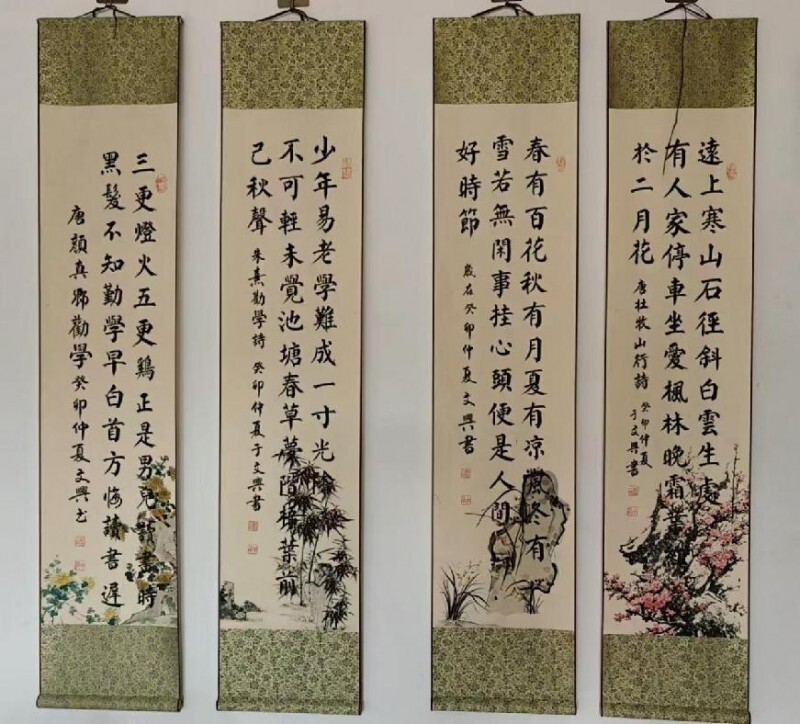 遠上寒山石徑斜白雲生處
有人家停車坐愛楓林晚霜葉紅
於二月花
唐杜牧山行詩
癸卯仲夏
于文興書
春有百花秋有月夏有凉風冬有
雪若無閑事挂心頭便是人間
好時節
歲在癸卯仲夏文興書
少年易老學難成一寸光陰
不可輕未覺池塘春草夢階梧葉前
已秋聲
朱熹勸學詩 癸卯仲夏于文興書
三更燈火五更鷄正是男兒讀書時
黑髮不知勤學早白首方悔讀書遲
唐顔真卿勸學 癸卯仲夏文興书